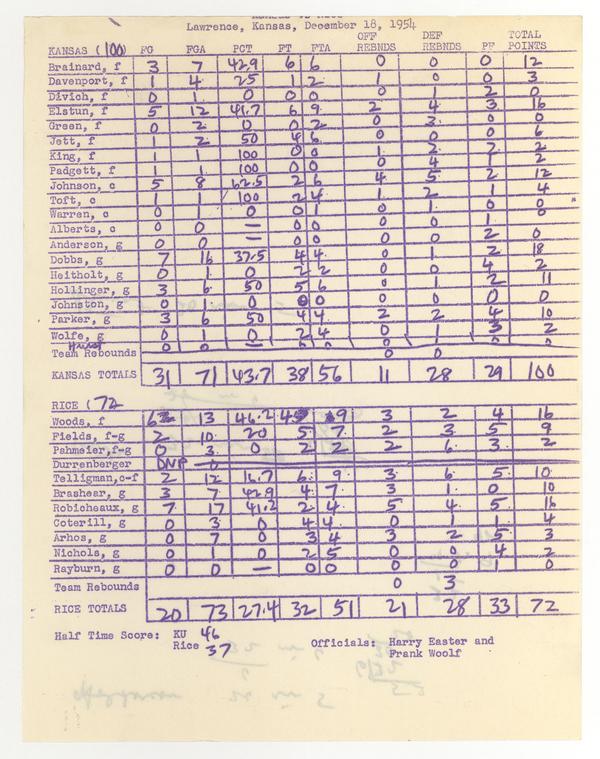 Lawrence, Kansas, December 18, 1954
OFF DEF TOTAL
KANSAS (100) FG FGA PCT FT FTA REBNDS REBNDS PF POINTS
Brainard, f 3 7 42.9 6 6 0 0 0 12
Davenport, f 1 4 25 1 2 1 0 0 3
Divich, f 0 1 0 0 0 0 1 2 0
Elstun, f 5 12 41.7 6 9 2 4 3 16
Green, f 0 2 0 0 2 0 3 0 0
Jett, f 1 2 50 4 6 0 0 0 6
King, f 1 1 100 0 0 1 2 2 2
Padgett, f 1 1 100 0 0 0 4 1 2
Johnson, c 5 8 62.5 2 6 4 5 2 12
Toft, c 1 1 100 2 4 1 2 1 4
Warren, c 0 1 0 0 1 0 1 0 0
Alberts, c 0 0 — 0 0 0 0 1 0
Anderson, g 0 0 — 0 0 0 0 2 0
Dobbs, g 7 16 37.5 4 4 0 1 2 18
Heitholt, g 0 1 0 2 2 0 0 4 2
Hollinger, g 3 6 50 5 6 0 1 2 11
Johnston, g 0 1 0 0 0 0 0 0 0
Parker, g 3 6 50 4 4 2 2 4 10
Wolfe, g 0 1 0 2 4 0 1 3 2
Hurst 0 0 — 0 0 0 1 0 0
Team Rebounds 0 0
KANSAS TOTALS 31 71 43.7 38 56 11 28 29 100
RICE (72
Woods, f 6 13 46.2 4 9 3 2 4 16
Fields, f-g 2 10 20 5 7 2 3 5 9
Pahmeier, f-g 0 3 0 2 2 2 6 3 2
Durrenberger DNP
Telligman, c-f 2 12 16.7 6 9 3 6 5 10
Brashear, g 3 7 42.9 4 7 3 1 0 10
Robicheaux, g 7 17 41.2 2 4 5 4 5 16
Coterill, g 0 3 0 4 4 0 1 1 4
Arhos, g 0 7 0 3 4 3 2 5 3
Nichols, g 0 1 0 2 5 0 0 4 2
Rayburn, g 0 0 — 0 0 0 0 1 0
Team Rebounds 0 3
RICE TOTALS 20 73 27.4 32 51 21 28 33 72
Half Time Score: KU 46
Rice 37 Officials: Harry Easter and
Frank Woolf